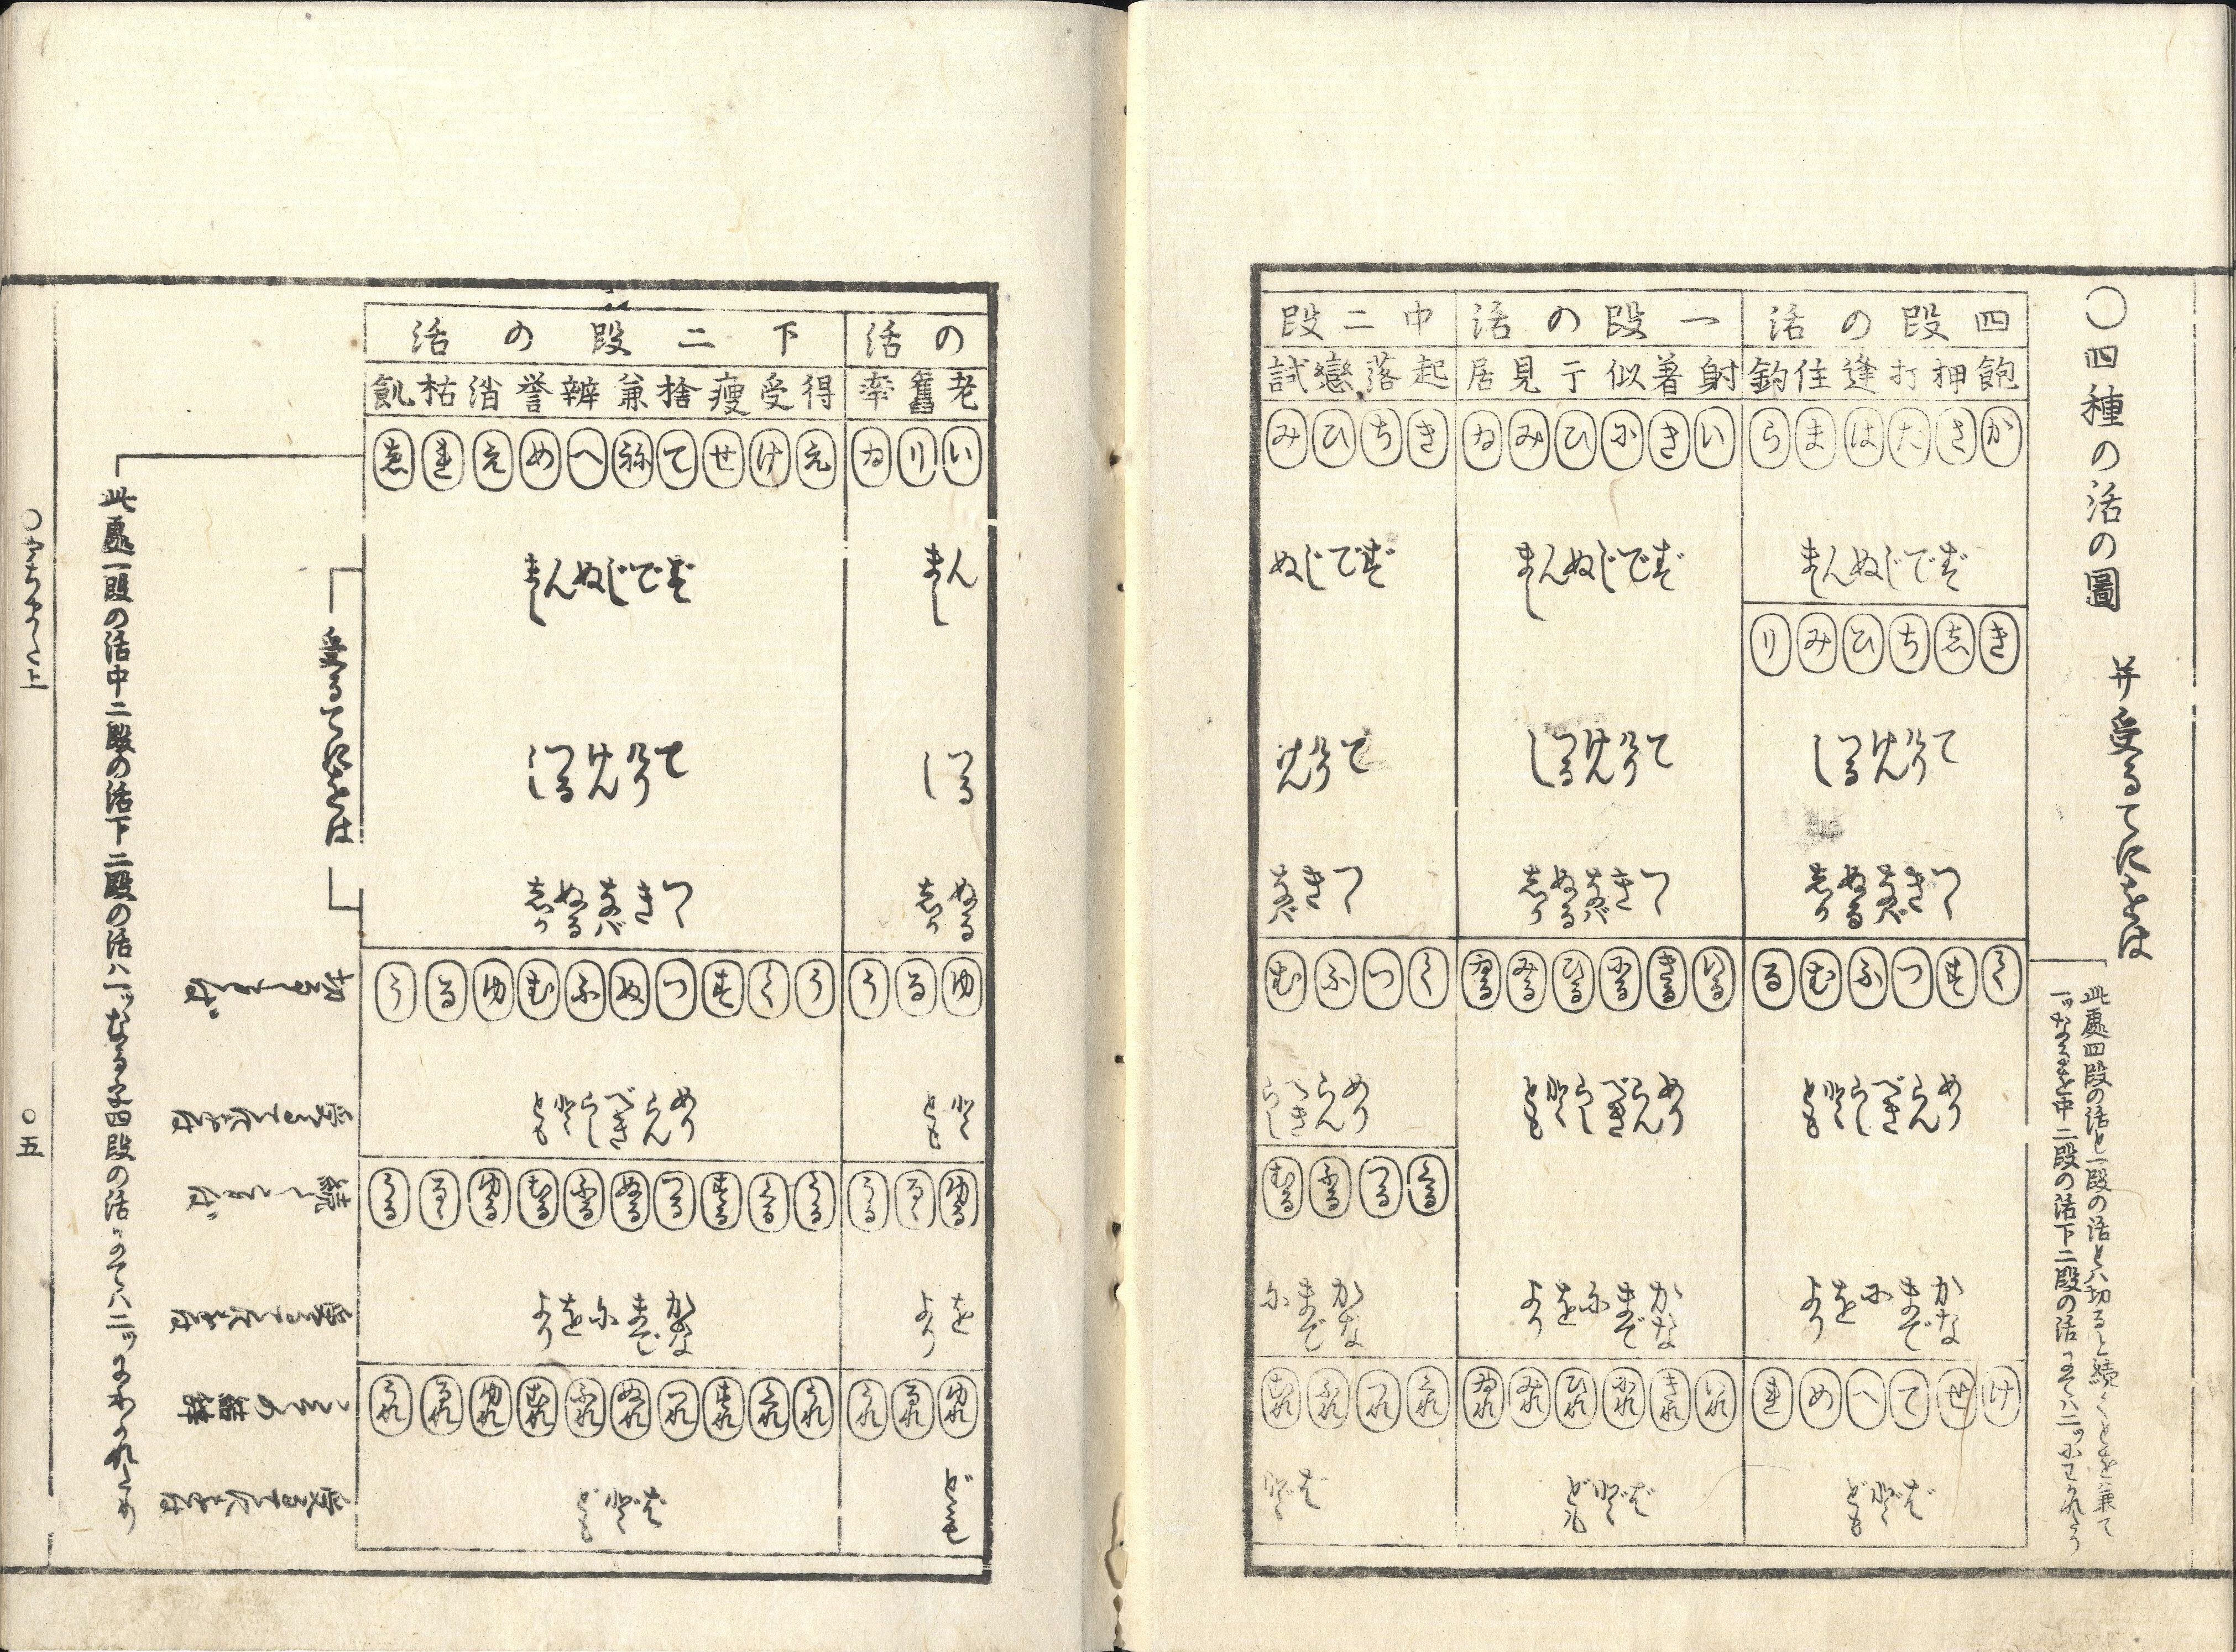 ○四種の活の圖 并受るてにをは
此處四段の活と一段の活とハ切るゝと續くとを兼て
一ッなるを中二段の活下二段の活にてハ二ッにわかれたり
四段の活
飽 押 打 逢 住 釣
か さ た は ま ら
ず で じ ぬ ん まし
き し ち ひ み り
て けり けん つる し
つゝ き なば ぬる しか
く す つ ふ む る
めり らん べき らし と とも
かな まで に を より
け せ て へ め れ
ば ど ども
一段の活
射 着 似 干 見 居
い き に ひ み ゐ
ず で じ ぬ ん まし
て けり けん つる し
つゝ き なば ぬる しか
いる きる にる ひる みる ゐる
めり らん べき らし と とも
かな まで に を より
いれ きれ にれ ひれ みれ ゐれ
ば ど ども
中二段
起 落 戀 試
き ち ひ み
ず で じ ぬ
て けり けん
つゝ き なば
く つ ふ む
めり らん べき らし
くる つる ふる むる
かな まで に
くれ つれ ふれ むれ
ば ど
の活
老 舊 率
い り ゐ
ん まし
つる し
ぬる しか
ゆ る う
と とも
ゆる るゝ うる
を より
ゆれ るれ うれ
ども
下二段の活
得 受 瘦 捨 兼 辨 誉 消 枯 飢
え け せ て ね へ め え れ ゑ
ず で じ ぬ ん まし
て けり けん つる し
つゝ き なば ぬる しか
う く す つ ぬ ふ む ゆ る う
めり らん べき らし と とも
うる くる する つる ぬる ふる むる ゆる るゝ うる
かな まで に を より
うれ くれ すれ つれ ぬれ ふれ むれ ゆれ るれ うれ
ば ど ども
受るてにをは
切るゝことば
受るてにをは
續くことば
受るてにをは
こその結辞
受るてにをは
此處一段の活中二段の活下二段の活ハ一ッなるを四段の活にてハ二ッにわかれたり
○やちまた上
○五